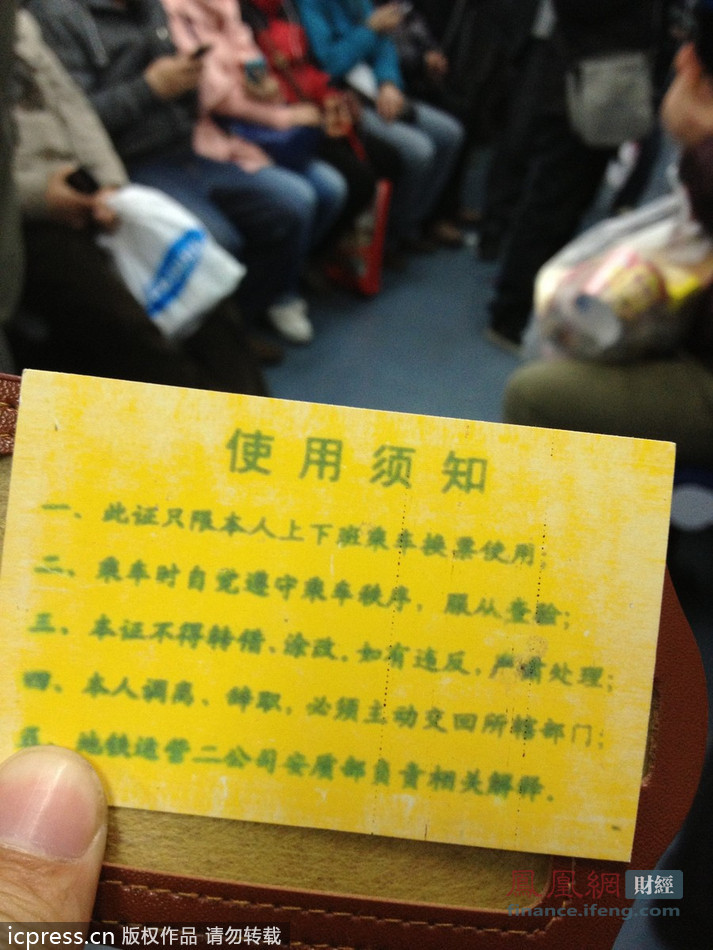 使用须知
一、此证只限本人上下班乘车换票使用;
二、乘车时自觉遵守乘车秩序,服从查验;
三、本证不得转借、涂改,如有违反,严肃处理;
四、本人调离、辞职,必须主动交回所辖部门;
五、地铁运营二公司安质部负责相关解释。
鳳凰網 財經
finance.ifeng.com
icpress.cn 版权作品 请勿转载